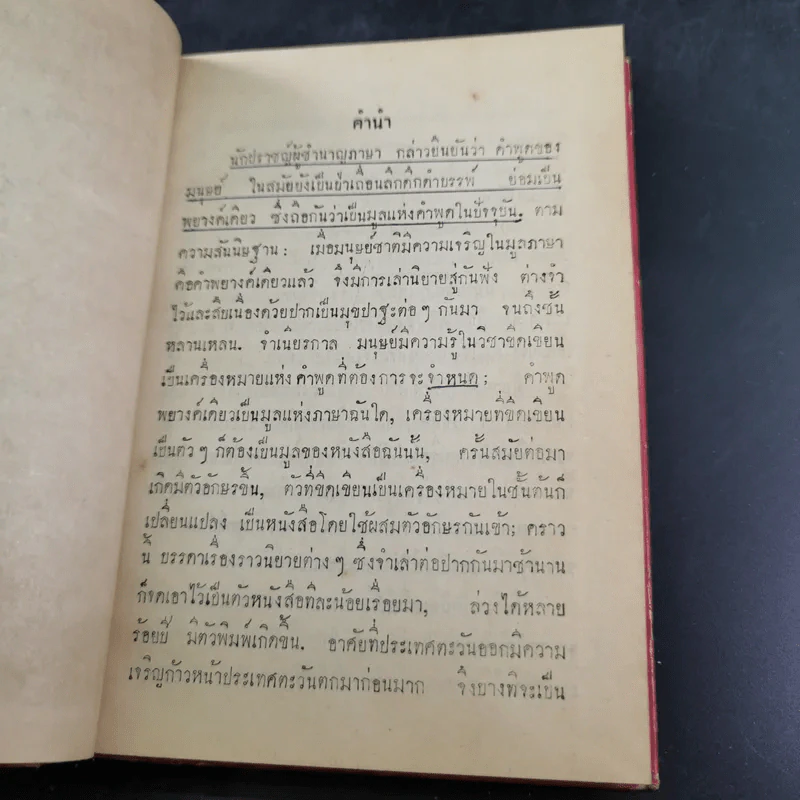 คำนำ
นักปราชญ์ผู้ชำนาญภาษา กล่าวยืนยันว่า คำพูดของ
มนุษย์ ในสมัยยังเป็นป่าเถื่อนลึกดึกดำบรรพ์ ย่อมเป็น
พยางค์เดียว ซึ่งถือกันว่าเป็นมูลแห่งคำพูดในปัจจุบัน. ตาม
ความสันนิษฐาน: เมื่อมนุษย์ชาติมีความเจริญในมูลภาษา
คือคำพยางค์เดียวแล้ว จึงมีการเล่านิยายสู่กันฟัง ต่างจำ
ไว้และสืบเนื่องด้วยปากเป็นมุขปาฐะต่อๆ กันมา จนถึงชั้น
หลานเหลน. จำเนียรกาล มนุษย์มีความรู้ในวิชาขีดเขียน
เป็นเครื่องหมายแห่งคำพูดที่ต้องการจะจำหนด; คำพูด
พยางค์เดียวเป็นมูลแห่งภาษาฉันใด, เครื่องหมายที่ขีดเขียน
เป็นตัวๆ ก็ต้องเป็นมูลของหนังสือฉันนั้น, ครั้นสมัยต่อมา
เกิดมีตัวอักษรขึ้น, ตัวที่ขีดเขียนเป็นเครื่องหมายในชั้นต้นก็
เปลี่ยนแปลง เป็นหนังสือโดยใช้ผสมตัวอักษรกันเข้า; คราว
นี้ บรรดาเรื่องราวนิยายต่างๆ ซึ่งจำเล่าต่อปากกันมาช้านาน
ก็จดเอาไว้เป็นตัวหนังสือทีละน้อยเรื่อยมา, ล่วงได้หลาย
ร้อยปี มีตัวพิมพ์เกิดขึ้น. อาศัยที่ประเทศตะวันออกมีความ
เจริญก้าวหน้าประเทศตะวันตกมาก่อนมาก จึงบางทีจะเป็น